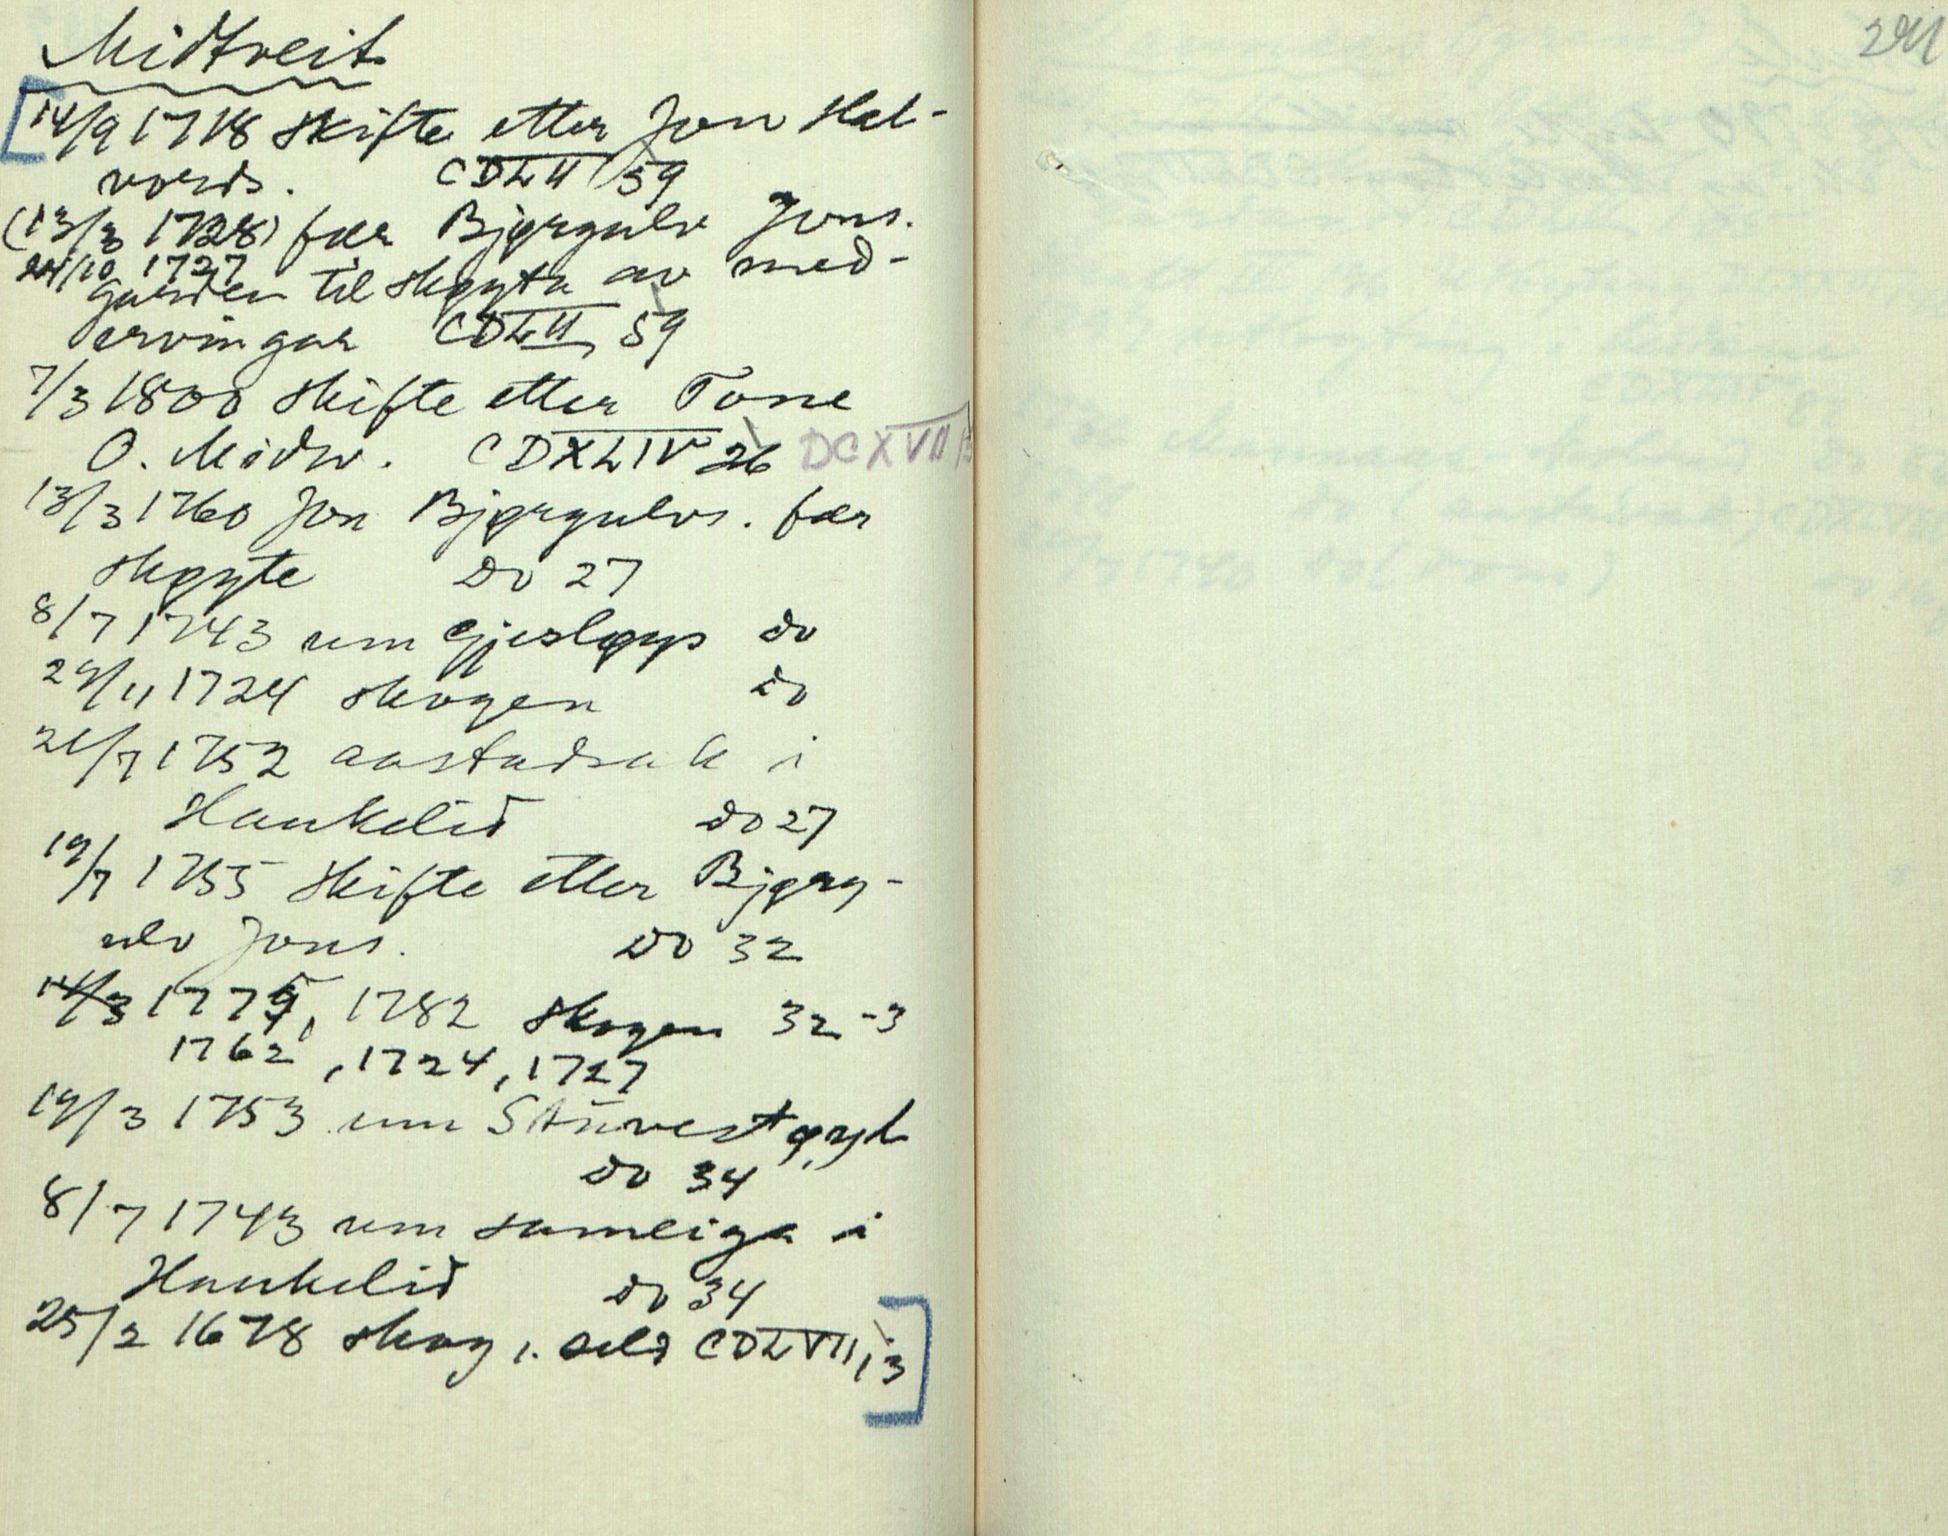 Midtveit
14/9 1718 skifte etter Jon Hal-
vords. CDLII 59
(13/3 1728) fær Bjørgulv Jons.
24/10 1727
garden til skøyta av med-
ervingar CDLII 59
7/3 1800 skifte etter Tone
O. Midtv. CDXLIV 26 DCXVII
13/3 1760 Jon Bjørgulvs. fær
skøyte do 27
8/7 1743 um Gjesløys do
29/11 1724 skogen do
21/7 1752 aastadsak i
Haukelid do 27
19/7 1755 skifte etter Bjørg-
ulv Jons. do 32
14/3 1775, 1782 skogen 32-3
1762, 1724, 1727
19/3 1753 um Stuvestøyl
do 34
8/7 1743 um sameiga i
Haukelid do 34
25/2 1678 skog i. seld CDLVII, 3
291